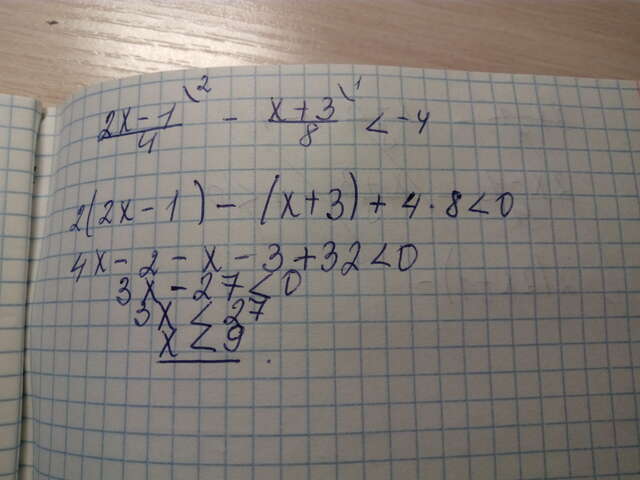 (2x-1)/4 \2 - (x+3)/8 \1 < -4
2(2x-1) - (x+3) + 4·8<0
4x-2-x-3+32<0
3x-27<0
3x<27
x<9.